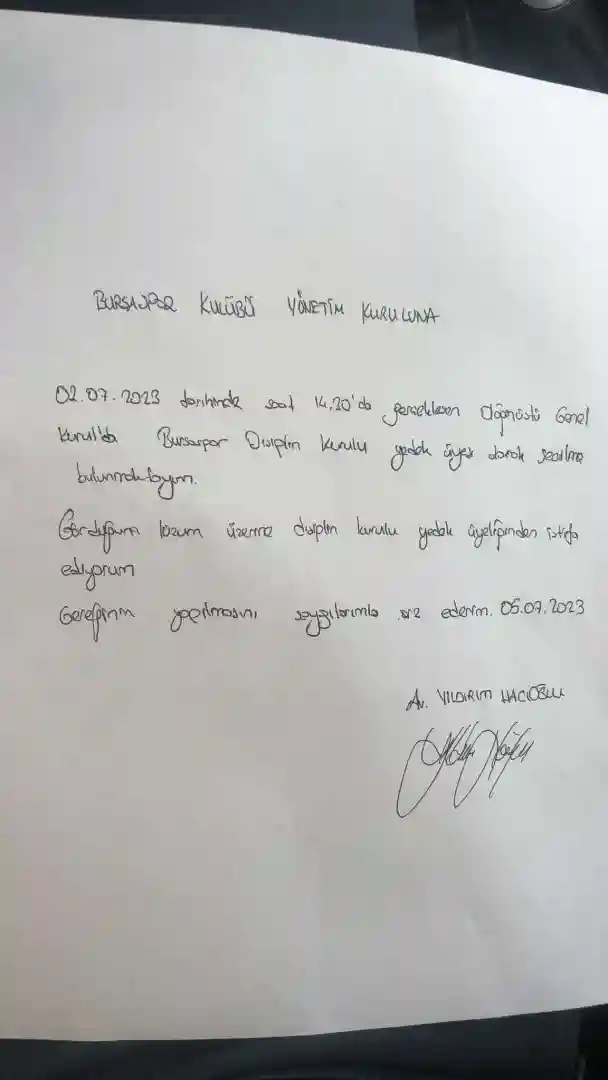 BURSASPOR KULÜBÜ YÖNETİM KURULUNA
02.07.2023 tarihinde saat 14.20'da gerçekleşen Olağanüstü Genel
Kurul'da Bursaspor Disiplin Kurulu yedek üyesi olarak seçilmiş
bulunmaktayım.
Gördüğüm lüzum üzerine disiplin kurulu yedek üyeliğinden istifa
ediyorum
Gereğinin yapılmasını saygılarımla arz ederim. 05.07.2023
Av. YILDIRIM HACIOĞLU